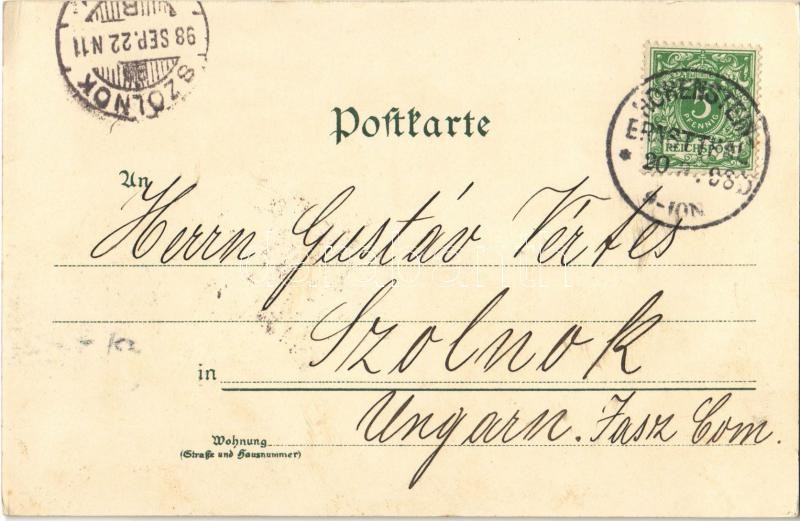 SZOLNOK
98 SEP. 22 N 11
Postkarte
5
PFENNIG
REICHSPOST
HOHENSTEIN
ERNSTTHAL
* 20
98
9-10N
An
Herrn Gustáv Vértes
in Szolnok
Ungarn. Jasz Com.
Wohnung
(Straße und Hausnummer)